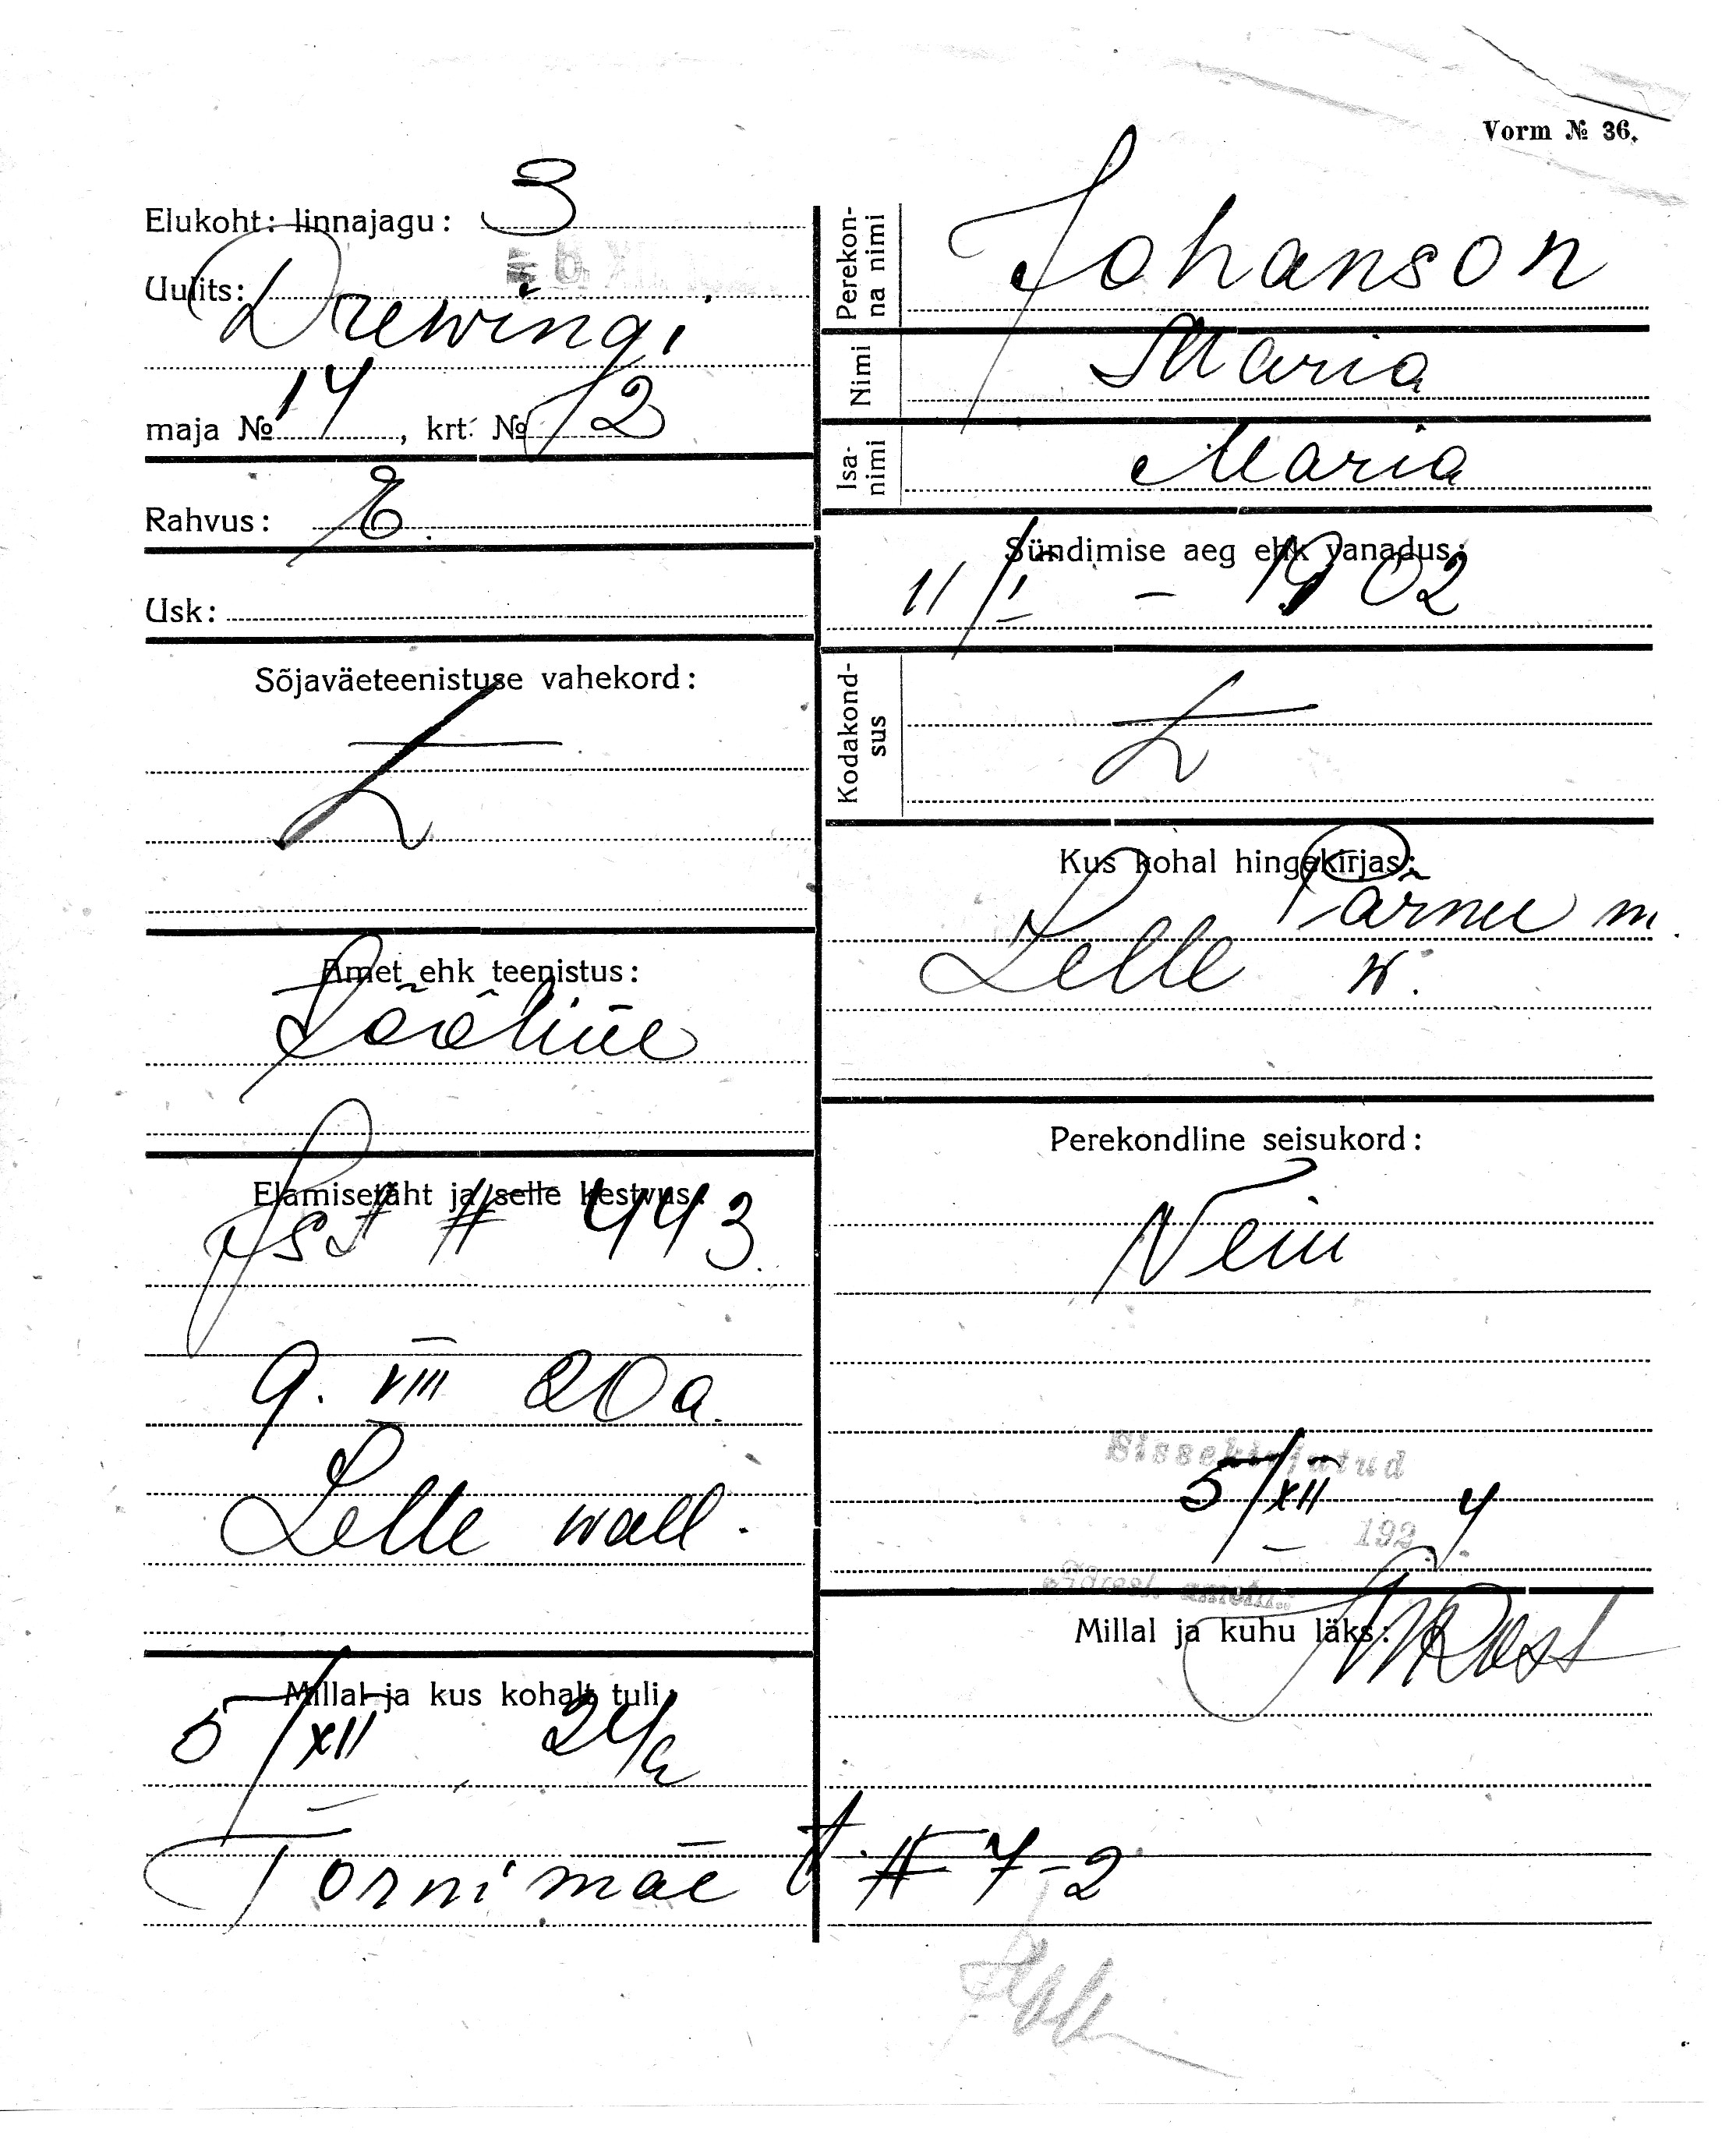 Vorm № 36.
Elukoht: linnajagu: 3
Uulits: Drewingi
maja № 14, krt. № 2
Rahvus: E.
Usk:
Sõjaväeteenistuse vahekord:
Amet ehk teenistus:
Tööline
Elamisetäht ja selle kestvus:
# 443.
9. VIII 20 a.
Lelle wall.
Millal ja kus kohalt tuli:
5/XII 24 a
Tornimäe t. # 7-2
Perekonna nimi
Johanson
Nimi
Maria
Isanimi
Maria
Sündimise aeg ehk vanadus:
11/I – 1902
Kodakondsus
Kus kohal hingekirjas:
Pärnu m.
Lelle w.
Perekondline seisukord:
Neiu
Sissekirjutud
5/XII
192 4.
Millal ja kuhu läks: